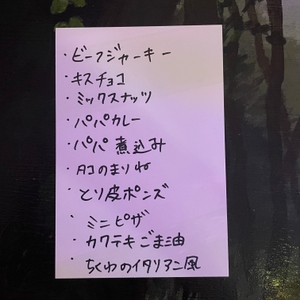 ・ビーフジャーキー
・キスチョコ
・ミックスナッツ
・パパカレー
・パパ煮込み
・タコのまりね
・とり皮ポンズ
・ミニピザ
・カワテキごま油
・ちくわのイタリアン風